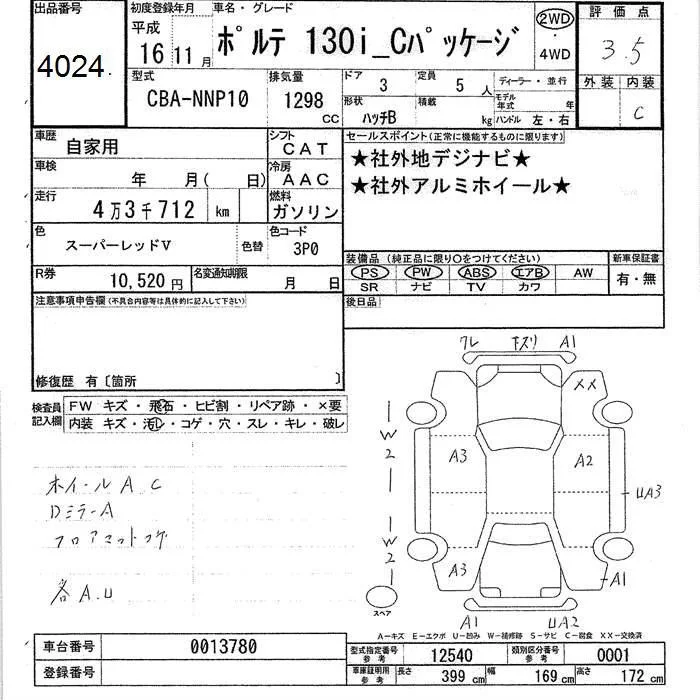 出品番号
4024.
初度登録年月
平成
16 11 月
車名・グレード
ポルテ 130i_Cパッケージ
2WD
・
4WD
評価点
3.5
外装 内装
C
型式
CBA-NNP10
排気量
1298
CC
ドア
3
定員
5 人
形状
ハッチB
積載
kg
ディーラー・並行
モデル年式 年
ハンドル 左・右
車歴
自家用
シフト
CAT
車検
年 月( 日)
冷房
AAC
走行
4万3千712 km
燃料
ガソリン
色
スーパーレッドV
色替
色コード
3P0
R券
10,520 円
名変通知期限
月 日
セールスポイント(正常に機能するものに限ります)
★社外地デジナビ★
★社外アルミホイール★
装備品(純正品に限り○をつけてください)
PS PW ABS エアB AW
SR ナビ TV カワ
新車保証書
有・無
後日品
注意事項申告欄(不具合内容等は具体的に記入して下さい)
修復歴 有〔箇所 〕
検査員記入欄
FW キズ・飛石・ヒビ割・リペア跡・×要
内装 キズ・汚レ・コゲ・穴・スレ・キレ・破レ
ホイールA C
Dミラ-A
フロアマットコゲ
各A.U
ワレ キズリ A1
XX
W2
A3
A2
UA3
W2
A3
A1
スペア
A1
UA2
A―キズ E―エクボ U―凹み W―補修跡 S―サビ C―腐食 XX―交換済
車台番号
0013780
登録番号
型式指定番号 参考
12540
類別区分番号 参考
0001
車庫証明用 参考
長さ 399 cm
幅 169 cm
高さ 172 cm